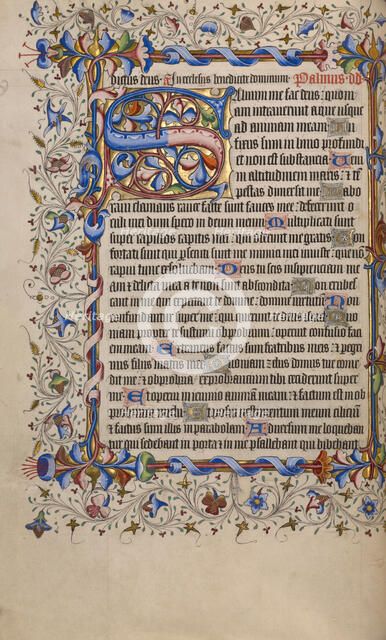 dictus deus : In ecclesiis benedicite dominum Psalmus dd
Salvum me fac deus : quoniam
intraverunt aque usque
ad animam meam Infixus
sum in limo profundi
et non est substancia Veni
in altitudinem maris : et
tempestas dimersit me Laboravi
clamans rauce facte sunt fauces mee : defecerunt
oculi mei dum spero in deum meum Multiplicati sunt
super capillos capitis mei : qui oderunt me gratis Confortati
sunt qui persecuti sunt me
rapui tunc exsolvebam Deus tu scis insipientiam meam
et delicta mea a te non sunt abscondita Non erubescant
in me qui expectant te domine : domine virtutum Non
confundantur super me : qui querunt te deus
Quoniam propter te sustinui opprobrium : operuit confusio faciem
meam Extraneus factus sum fratribus meis : et peregrinus
filiis matris mee Quoniam zelus domus tue comedit
me : et obprobria exprobrantium tibi ceciderunt super
me Et operui in ieiunio animam meam : et factum est in
opprobrium michi Et posui vestimentum meum cilicium
et factus sum illis in parabolam Adversum me loquebantur
qui sedebant in porta : et in me psallebant qui bibebant